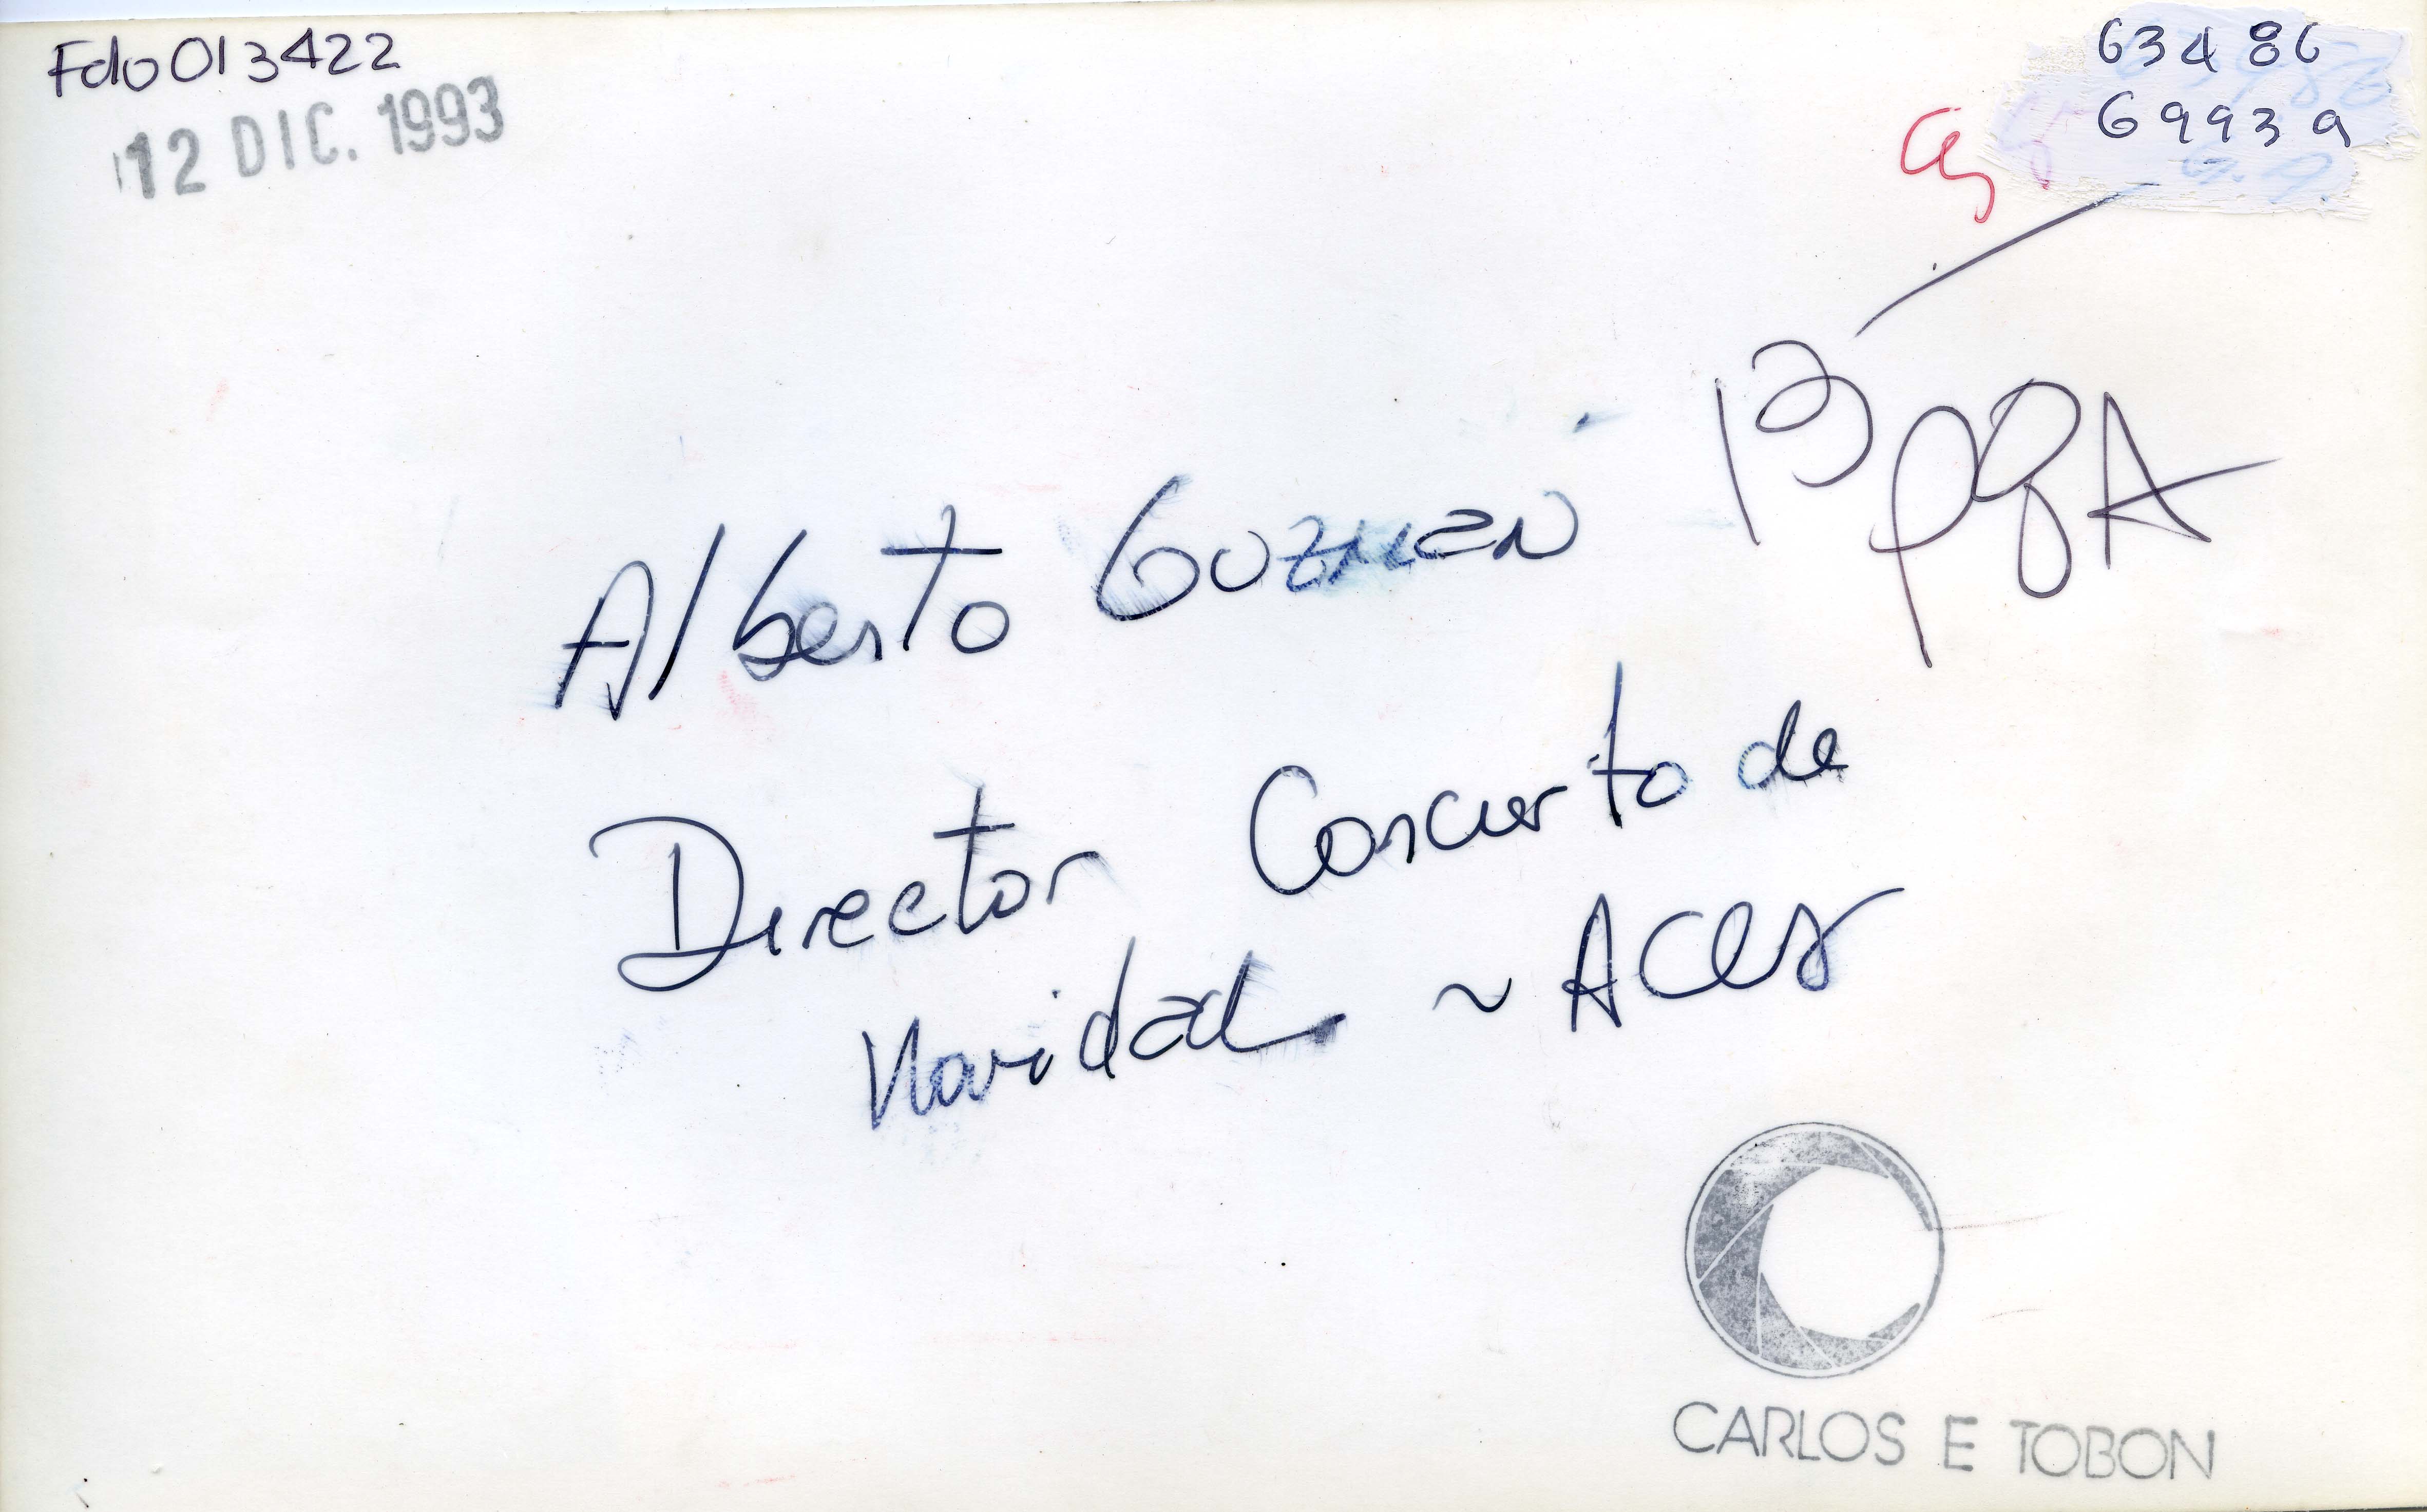 Fdo013422
12 DIC. 1993
63486
69939
Alberto Guzman
Director Concierto de
Navidad ~ Aces
CARLOS E TOBON